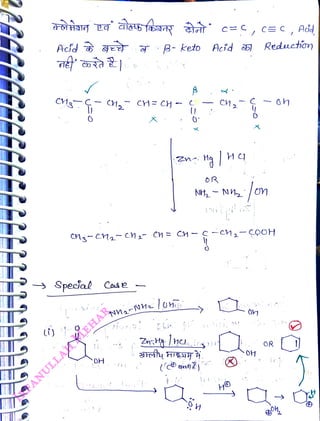 क्लीमेंशन एवं वोल्फ किश्नर दोनों C=C, C≡C, Acid,
Acid के बच्चे व β-keto Acid का Reduction
नहीं करते है।
β α
CH₃-C-CH₂-CH=CH-C-CH₂-C-OH
O O O
x x x
Zn-Hg / HCl
OR
NH₂-NH₂ / OH
CH₃-CH₂-CH₂-CH=CH-C-CH₂-COOH
O
→ Special Case -
NH₂-NH₂ / OH⁻
OH
(i) O
Zn-Hg / HCl
अम्लीय माध्यम में
(C⊕ बनाने)
OH
OH OR
H⊕
ÖH
⊕OH₂
⊕